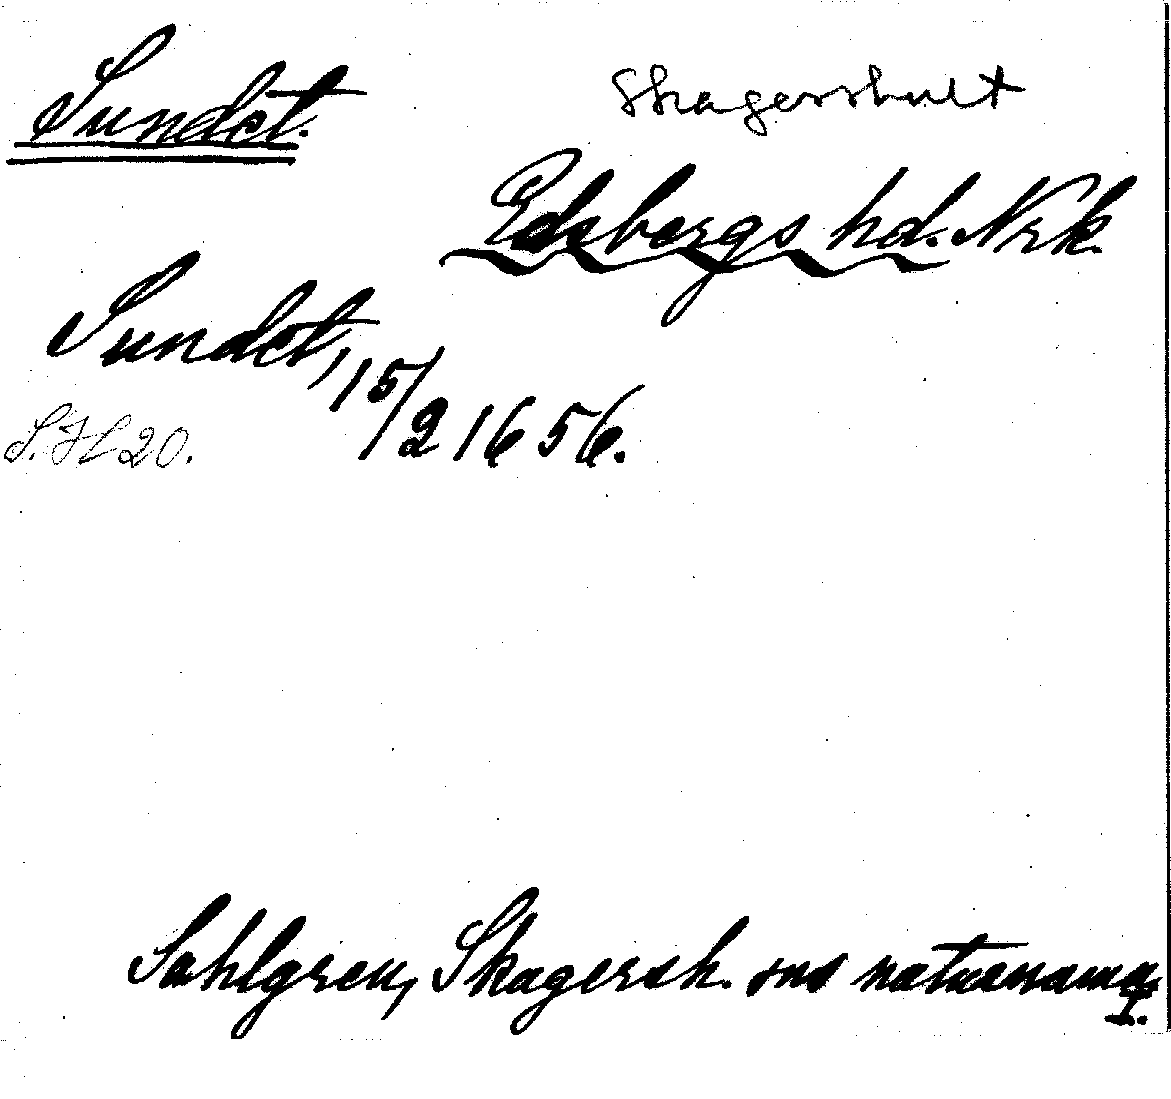 Sundet.
Skagershult
Edsbergs hd. Nrk.
Sundet, 15/2 1656.
S.Hl 20.
Sahlgren, Skagersh. sns naturnamn
I.